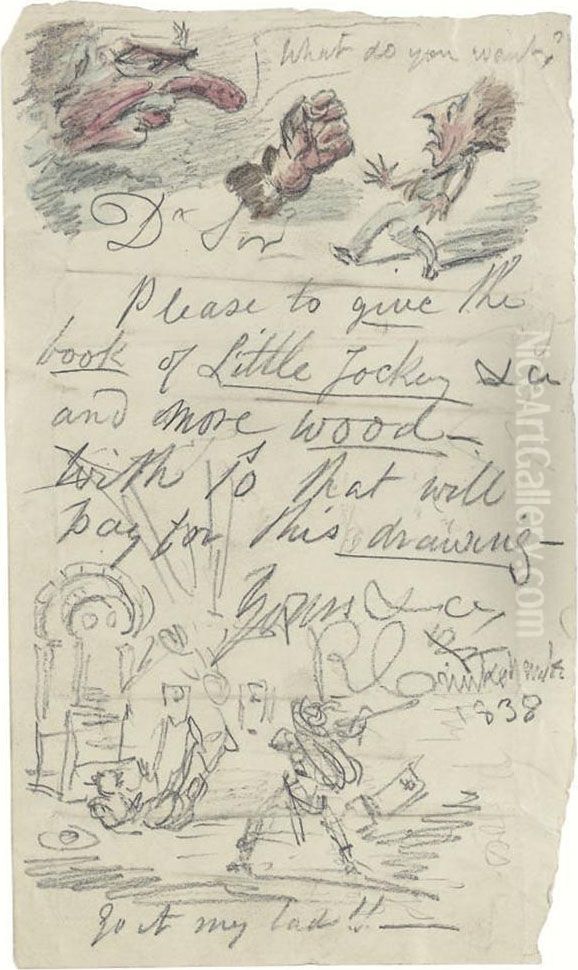 What do you want?
Dr Sir
Please to give the
book of Little Jockey &c
and more wood—
with 10s that will
pay for this drawing—
Yours &c
R Cruikshank
1838
Go it my lads!!—
NiceArtGallery.com